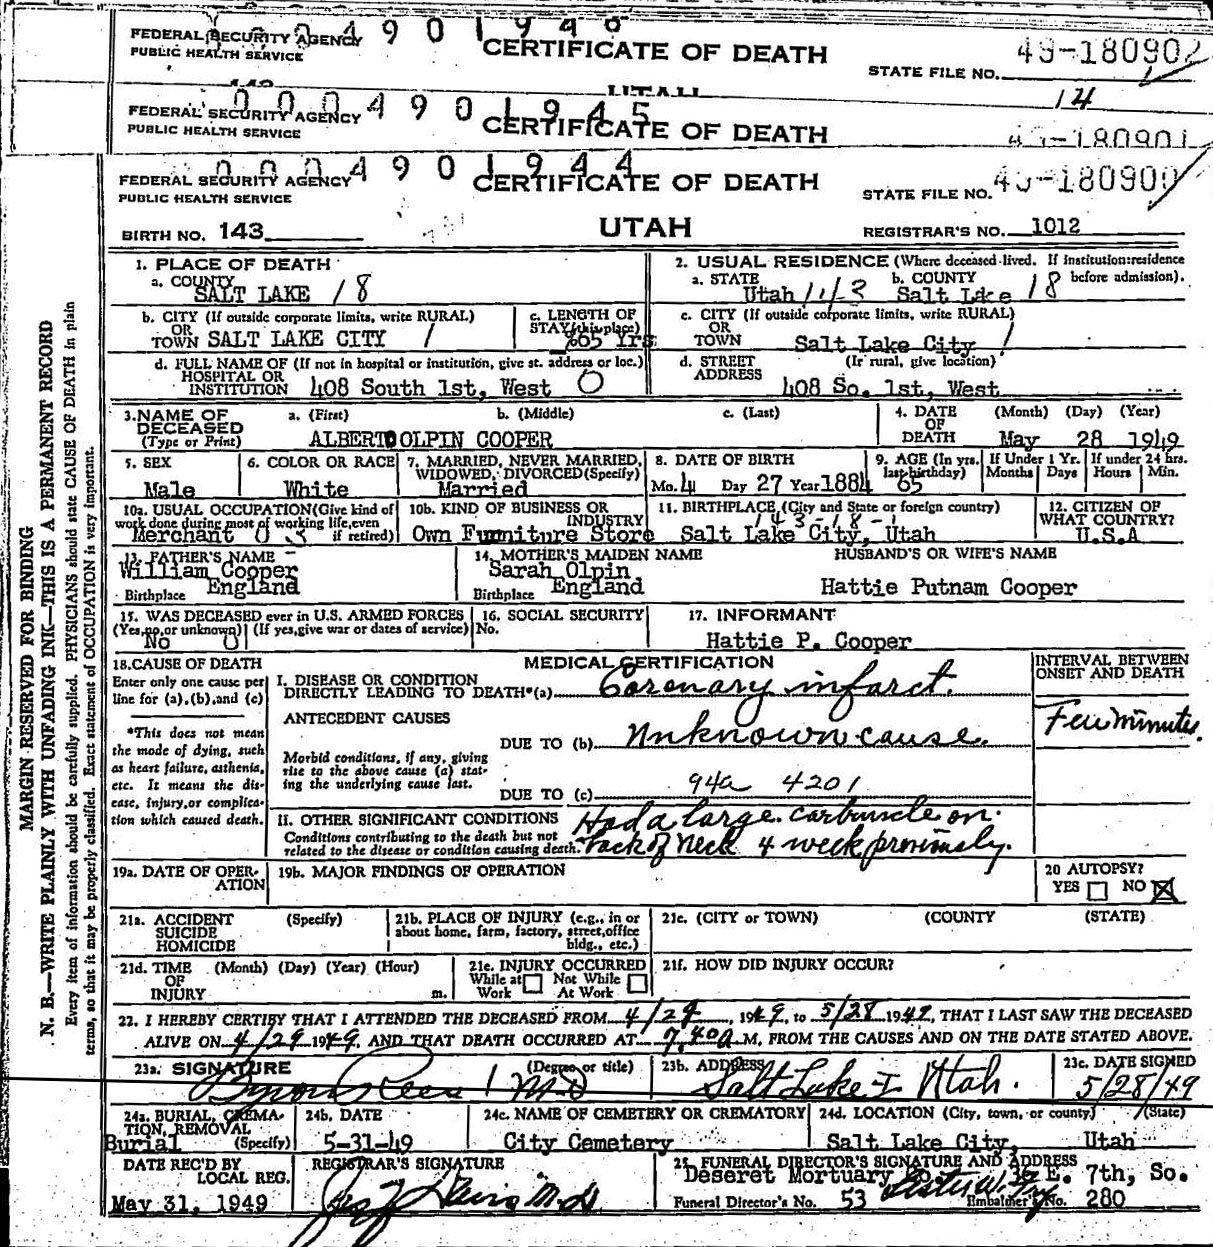 0004901946
FEDERAL SECURITY AGENCY
PUBLIC HEALTH SERVICE
CERTIFICATE OF DEATH
STATE FILE NO. 49-180902
14
UTAH
0004901945
FEDERAL SECURITY AGENCY
PUBLIC HEALTH SERVICE
CERTIFICATE OF DEATH
49-180901
0004901944
FEDERAL SECURITY AGENCY
PUBLIC HEALTH SERVICE
CERTIFICATE OF DEATH
STATE FILE NO. 49-180900
BIRTH NO. 143
UTAH
REGISTRAR'S NO. 1012
MARGIN RESERVED FOR BINDING
N. B.—WRITE PLAINLY WITH UNFADING INK—THIS IS A PERMANENT RECORD
Every item of information should be carefully supplied. PHYSICIANS should state CAUSE OF DEATH in plain
terms, so that it may be properly classified. Exact statement of OCCUPATION is very important.
1. PLACE OF DEATH
a. COUNTY
SALT LAKE 18
2. USUAL RESIDENCE (Where deceased lived. If institution: residence
before admission).
a. STATE
Utah
b. COUNTY
Salt Lake 18
b. CITY (If outside corporate limits, write RURAL)
OR
TOWN SALT LAKE CITY 1
c. LENGTH OF
STAY (this place)
65 Yrs
c. CITY (If outside corporate limits, write RURAL)
OR
TOWN Salt Lake City 1
d. FULL NAME OF (If not in hospital or institution, give st. address or loc.)
HOSPITAL OR
INSTITUTION 408 South 1st, West 0
d. STREET
ADDRESS
(If rural, give location)
408 So. 1st, West
3. NAME OF
DECEASED
(Type or Print)
a. (First)
b. (Middle)
c. (Last)
ALBERT OLPIN COOPER
4. DATE
OF
DEATH
(Month) (Day) (Year)
May 28 1949
5. SEX
Male
6. COLOR OR RACE
White
7. MARRIED, NEVER MARRIED,
WIDOWED, DIVORCED (Specify)
Married
8. DATE OF BIRTH
Mo. 4 Day 27 Year 1884
9. AGE (In yrs.
last birthday)
65
If Under 1 Yr.
Months Days
If under 24 hrs.
Hours Min.
10a. USUAL OCCUPATION (Give kind of
work done during most of working life, even
if retired)
Merchant
10b. KIND OF BUSINESS OR
INDUSTRY
Own Furniture Store
11. BIRTHPLACE (City and State or foreign country)
143-18-1
Salt Lake City, Utah
12. CITIZEN OF
WHAT COUNTRY?
U.S.A
13. FATHER'S NAME
William Cooper
Birthplace England
14. MOTHER'S MAIDEN NAME
Sarah Olpin
Birthplace England
HUSBAND'S OR WIFE'S NAME
Hattie Putnam Cooper
15. WAS DECEASED ever in U.S. ARMED FORCES
(Yes, no, or unknown) (If yes, give war or dates of service)
No 0
16. SOCIAL SECURITY
No.
17. INFORMANT
Hattie P. Cooper
18. CAUSE OF DEATH
Enter only one cause per
line for (a), (b), and (c)
*This does not mean
the mode of dying, such
as heart failure, asthenia,
etc. It means the dis-
ease, injury, or complica-
tion which caused death.
MEDICAL CERTIFICATION
INTERVAL BETWEEN
ONSET AND DEATH
I. DISEASE OR CONDITION
DIRECTLY LEADING TO DEATH*(a) Coronary infarct.
Few minutes.
ANTECEDENT CAUSES
DUE TO (b) Unknown cause.
Morbid conditions, if any, giving
rise to the above cause (a) stat-
ing the underlying cause last.
DUE TO (c) 94a 4201
II. OTHER SIGNIFICANT CONDITIONS
Conditions contributing to the death but not
related to the disease or condition causing death.
Had a large carbuncle on
back of neck 4 week previously.
19a. DATE OF OPER-
ATION
19b. MAJOR FINDINGS OF OPERATION
20 AUTOPSY?
YES NO
21a. ACCIDENT
SUICIDE
HOMICIDE
(Specify)
21b. PLACE OF INJURY (e.g., in or
about home, farm, factory, street, office
bldg., etc.)
21c. (CITY or TOWN) (COUNTY (STATE)
21d. TIME
OF
INJURY
(Month) (Day) (Year) (Hour)
m.
21e. INJURY OCCURRED
While at
Work
Not While
At Work
21f. HOW DID INJURY OCCUR?
22. I HEREBY CERTIFY THAT I ATTENDED THE DECEASED FROM 4/29, 1949, to 5/28 1949, THAT I LAST SAW THE DECEASED
ALIVE ON 4/29 1949, AND THAT DEATH OCCURRED AT 7.40a M., FROM THE CAUSES AND ON THE DATE STATED ABOVE.
23a. SIGNATURE (Degree or title)
Byron Rees MD
23b. ADDRESS
Salt Lake Utah.
23c. DATE SIGNED
5/28/49
24a. BURIAL, CREMA-
TION, REMOVAL
(Specify)
Burial
24b. DATE
5-31-49
24c. NAME OF CEMETERY OR CREMATORY
City Cemetery
24d. LOCATION (City, town, or county) (State)
Salt Lake City, Utah
DATE REC'D BY
LOCAL REG.
May 31, 1949
REGISTRAR'S SIGNATURE
25. FUNERAL DIRECTOR'S SIGNATURE AND ADDRESS
Deseret Mortuary E. 7th, So.
Funeral Director's No. 53
Embalmer's No. 280